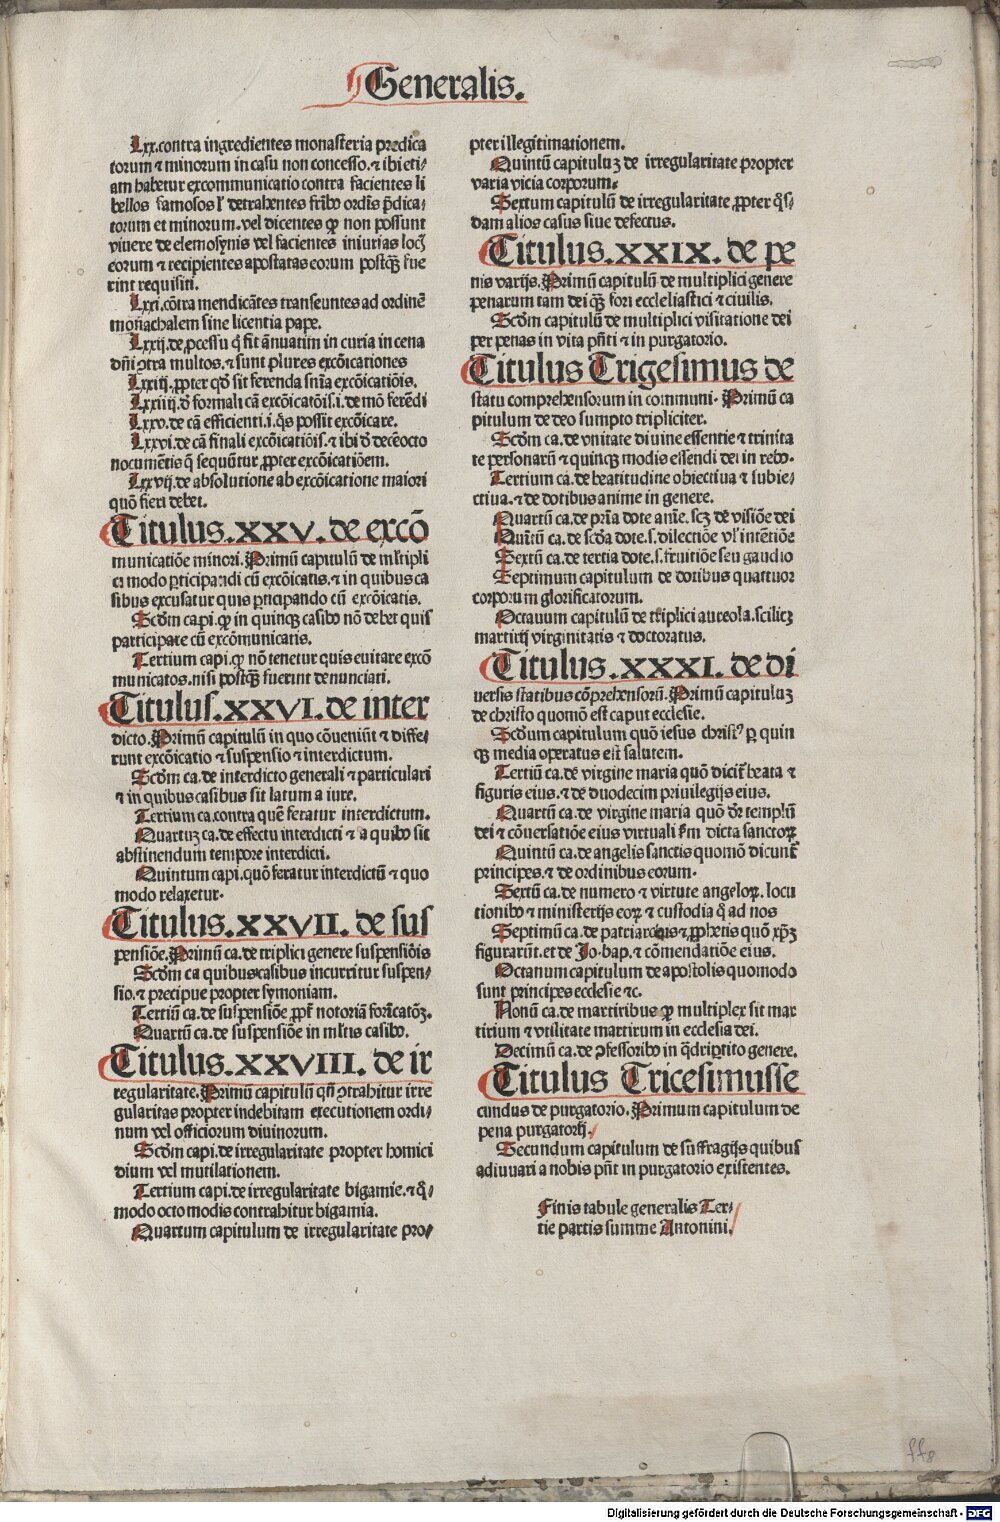 Generalis.
Lxx.contra ingredientes monasteria predica
torum ⁊ minorum in casu non concesso.⁊ ibi eti⸗
am habetur excommunicatio contra facientes li
bellos famosos l' detrahentes fribꝰ ordīs p̄dica⸗
torum et minorum.vel dicentes ꝙ non possunt
viuere de elemosynis vel facientes iniurias locꝭ
eorum ⁊ recipientes apostatas eorum postꝙ̄ fue
rint requisiti.
Lxxi.cōtra mendicātes transeuntes ad ordinē
monachalem sine licentia pape.
Lxxij.de ꝓcessu q̇ fit ānuatim in curia in cena
dn̄i ꝯtra multos.⁊ sunt plures excōicationes
Lxxiij.ꝓpter qđ sit ferenda sn̄ia excōicatiōis.
Lxxiiij.đ formali cā excōicatōis.i.de mō ferēdi
Lxxv.de cā efficienti.i.q̇s possit excōicare.
Lxxvi.de cā finali excōicatiōis.⁊ ibi đ decēocto
nocumētis q̄ sequūtur ꝓpter excōicatiōem.
Lxxvij.de absolutione ab excōicatione maiori
quō fieri debet.
Titulus.XXV.de excō
municatiōe minori.Primū capitulū de ml'tipli
ci modo ꝑticipandi cū excōicatis.⁊ in quibus ca
sibus excusatur quis ꝑticipando cū excōicatis.
Scđm capi.ꝙ in quinqꝫ casibꝰ nō debet quis
participare cū excōmunicatis.
Tertium capi.ꝙ nō tenetur quis euitare excō
municatos.nisi postꝙ̄ fuerint denunciati.
Titulus.XXVI.de inter
dicto.Primū capitulū in quo cōueniūt ⁊ diffe⸗
runt excōicatio ⁊ suspensio ⁊ interdictum.
Scđm ca.de interdicto generali ⁊ particulari
⁊ in quibus casibus sit latum a iure.
Tertium ca.contra quē feratur interdictum.
Quartuꝫ ca.de effectu interdicti ⁊ a quibꝰ sit
abstinendum tempore interdicti.
Quintum capi.quō feratur interdictū ⁊ quo
modo relaxetur.
Titulus.XXVII.de sus
pensiōe.Primū ca.de triplici genere suspensiōis
Scđm ca quibuscasibus incurritur suspen⸗
sio.⁊ precipue propter symoniam.
Tertiū ca.de suspensiōe ꝓpt̄ notoriā fornicatōꝫ.
Quartū ca.de suspensiōe in ml'tis casibꝰ.
Titulus.XXVIII.de ir
regularitate.Primū capitulū qn̄ ꝯtrahitur irre
gularitas propter indebitam executionem ordi⸗
num vel officiorum diuinorum.
Scđm capi.de irregularitate propter homici
dium vel mutilationem.
Tertium capi.de irregularitate bigamie.⁊ q̊⸗
modo octo modis contrahitur bigamia.
Quartum capitulum de irregularitate pro⸗
pter illegitimationem.
Quintū capituluꝫ de irregularitate propter
varia vicia corporum.
Sextum capitulū de irregularitate ꝓpter q̇s⸗
dam alios casus siue defectus.
Titulus.XXIX.de pe
nis varijs.Primū capitulū de multiplici genere
penarum tam dei qꝫ fori ecclesiastici ⁊ ciuilis.
Scđm capitulū de multiplici visitatione dei
per penas in vita pn̄ti ⁊ in purgatorio.
Titulus Trigesimus de
statu comprehensorum in communi. Primū ca
pitulum de deo sumpto tripliciter.
Scđm ca.de vnitate diuine essentie ⁊ trinita
te personarū ⁊ quinqꝫ modis essendi dei in rebꝰ.
Tertium ca.de beatitudine obiectiua ⁊ subie⸗
ctiua.⁊ de dotibus anime in genere.
Quartū ca.de pria dote anīe.scꝫ de visiōe dei
Quītū ca.de scđa dote.s.dilectiōe vl' intētiōe
Sextū ca.de tertia dote.s.fruitiōe seu gaudio
Septimum capitulum de dotibus quattuor
corporum glorificatorum.
Octauum capitulū de triplici aureola.scilicꝫ
martirij virginitatis ⁊ doctoratus.
Titulus.XXXI.de di
uersis statibus cōprehensorū.Primū capituluꝫ
de christo quomō est caput ecclesie.
Scđum capitulum quō iesus christꝰ ꝑ quin
qꝫ media operatus est salutem.
Tertiū ca.de virgine maria quō dicit̄ beata ⁊
figuris eius.⁊ de duodecim priuilegijs eius.
Quartū ca.de virgine maria quō dr̄ templū
dei ⁊ cōuersatiōe eius virtuali ẜm dicta sanctoꝝ
Quintū ca.de angelis sanctis quomō dicunt̄
principes.⁊ de ordinibus eorum.
Sextū ca.de numero ⁊ virtute angeloꝝ.locu
tionibꝰ ⁊ ministerijs eoꝝ ⁊ custodia q̄ ad nos
Septimū ca.de patriarchis ⁊ ꝓphetis quō xp̄ꝫ
figurarūt.et de Jo.bap.⁊ cōmendatiōe eius.
Octauum capitulum de apostolis quomodo
sunt principes ecclesie ⁊c.
Nonū ca.de martiribus ꝙ multiplex sit mar
tirium ⁊ vtilitate martirum in ecclesia dei.
Decimū ca.de ꝯfessoribꝰ in q̄dripꝑtito genere.
Titulus Tricesimusse
cundus de purgatorio.Primum capitulum de
pena purgatorij.
Secundum capitulum de suffragijs quibus
adiuuari a nobis pn̄t in purgatorio existentes.
Finis tabule generalis Ter⸗
tie partis summe Antonini.
ff8
Digitalisierung gefördert durch die Deutsche Forschungsgemeinschaft - DFG